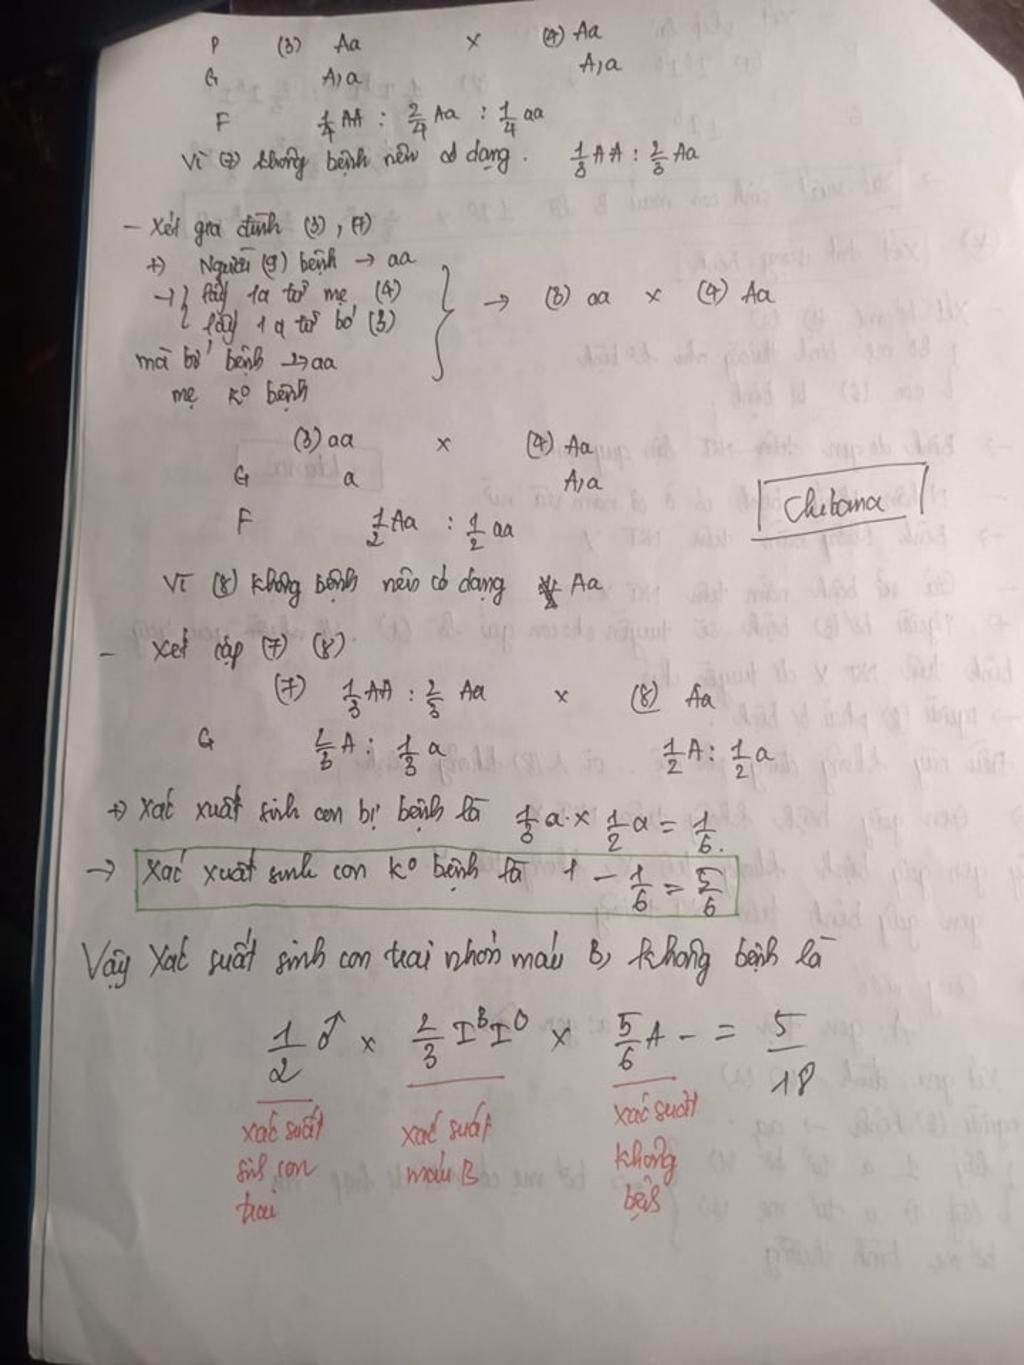 P (3) Aa × (4) Aa
G A,a A,a
F 1/4 AA : 2/4 Aa : 1/4 aa
Vì (7) không bệnh nên có dạng. 1/3 AA : 2/3 Aa
- Xét gia đình (3), (4)
+) Người (9) bệnh → aa
→ { lấy 1a từ mẹ (4)
lấy 1a từ bố (3)
mà bố bệnh → aa
mẹ ko bệnh
} → (3) aa × (4) Aa
(3) aa × (4) Aa
G a A,a
F 1/2 Aa : 1/2 aa
Chibana
Vì (8) không bệnh nên có dạng Aa
- Xét cặp (7) (8)
(7) 1/3 AA : 2/3 Aa × (8) Aa
G 2/3 A : 1/3 a 1/2 A : 1/2 a
+) Xác xuất sinh con bị bệnh là 1/3 a × 1/2 a = 1/6.
→ Xác xuất sinh con ko bệnh là 1 - 1/6 = 5/6
Vậy Xác suất sinh con trai nhóm máu B, không bệnh là
1/2 ♂ × 2/3 I^B I^O × 5/6 A- = 5/18
xác suất sinh con trai
xác suất máu B
xác suất không bệnh